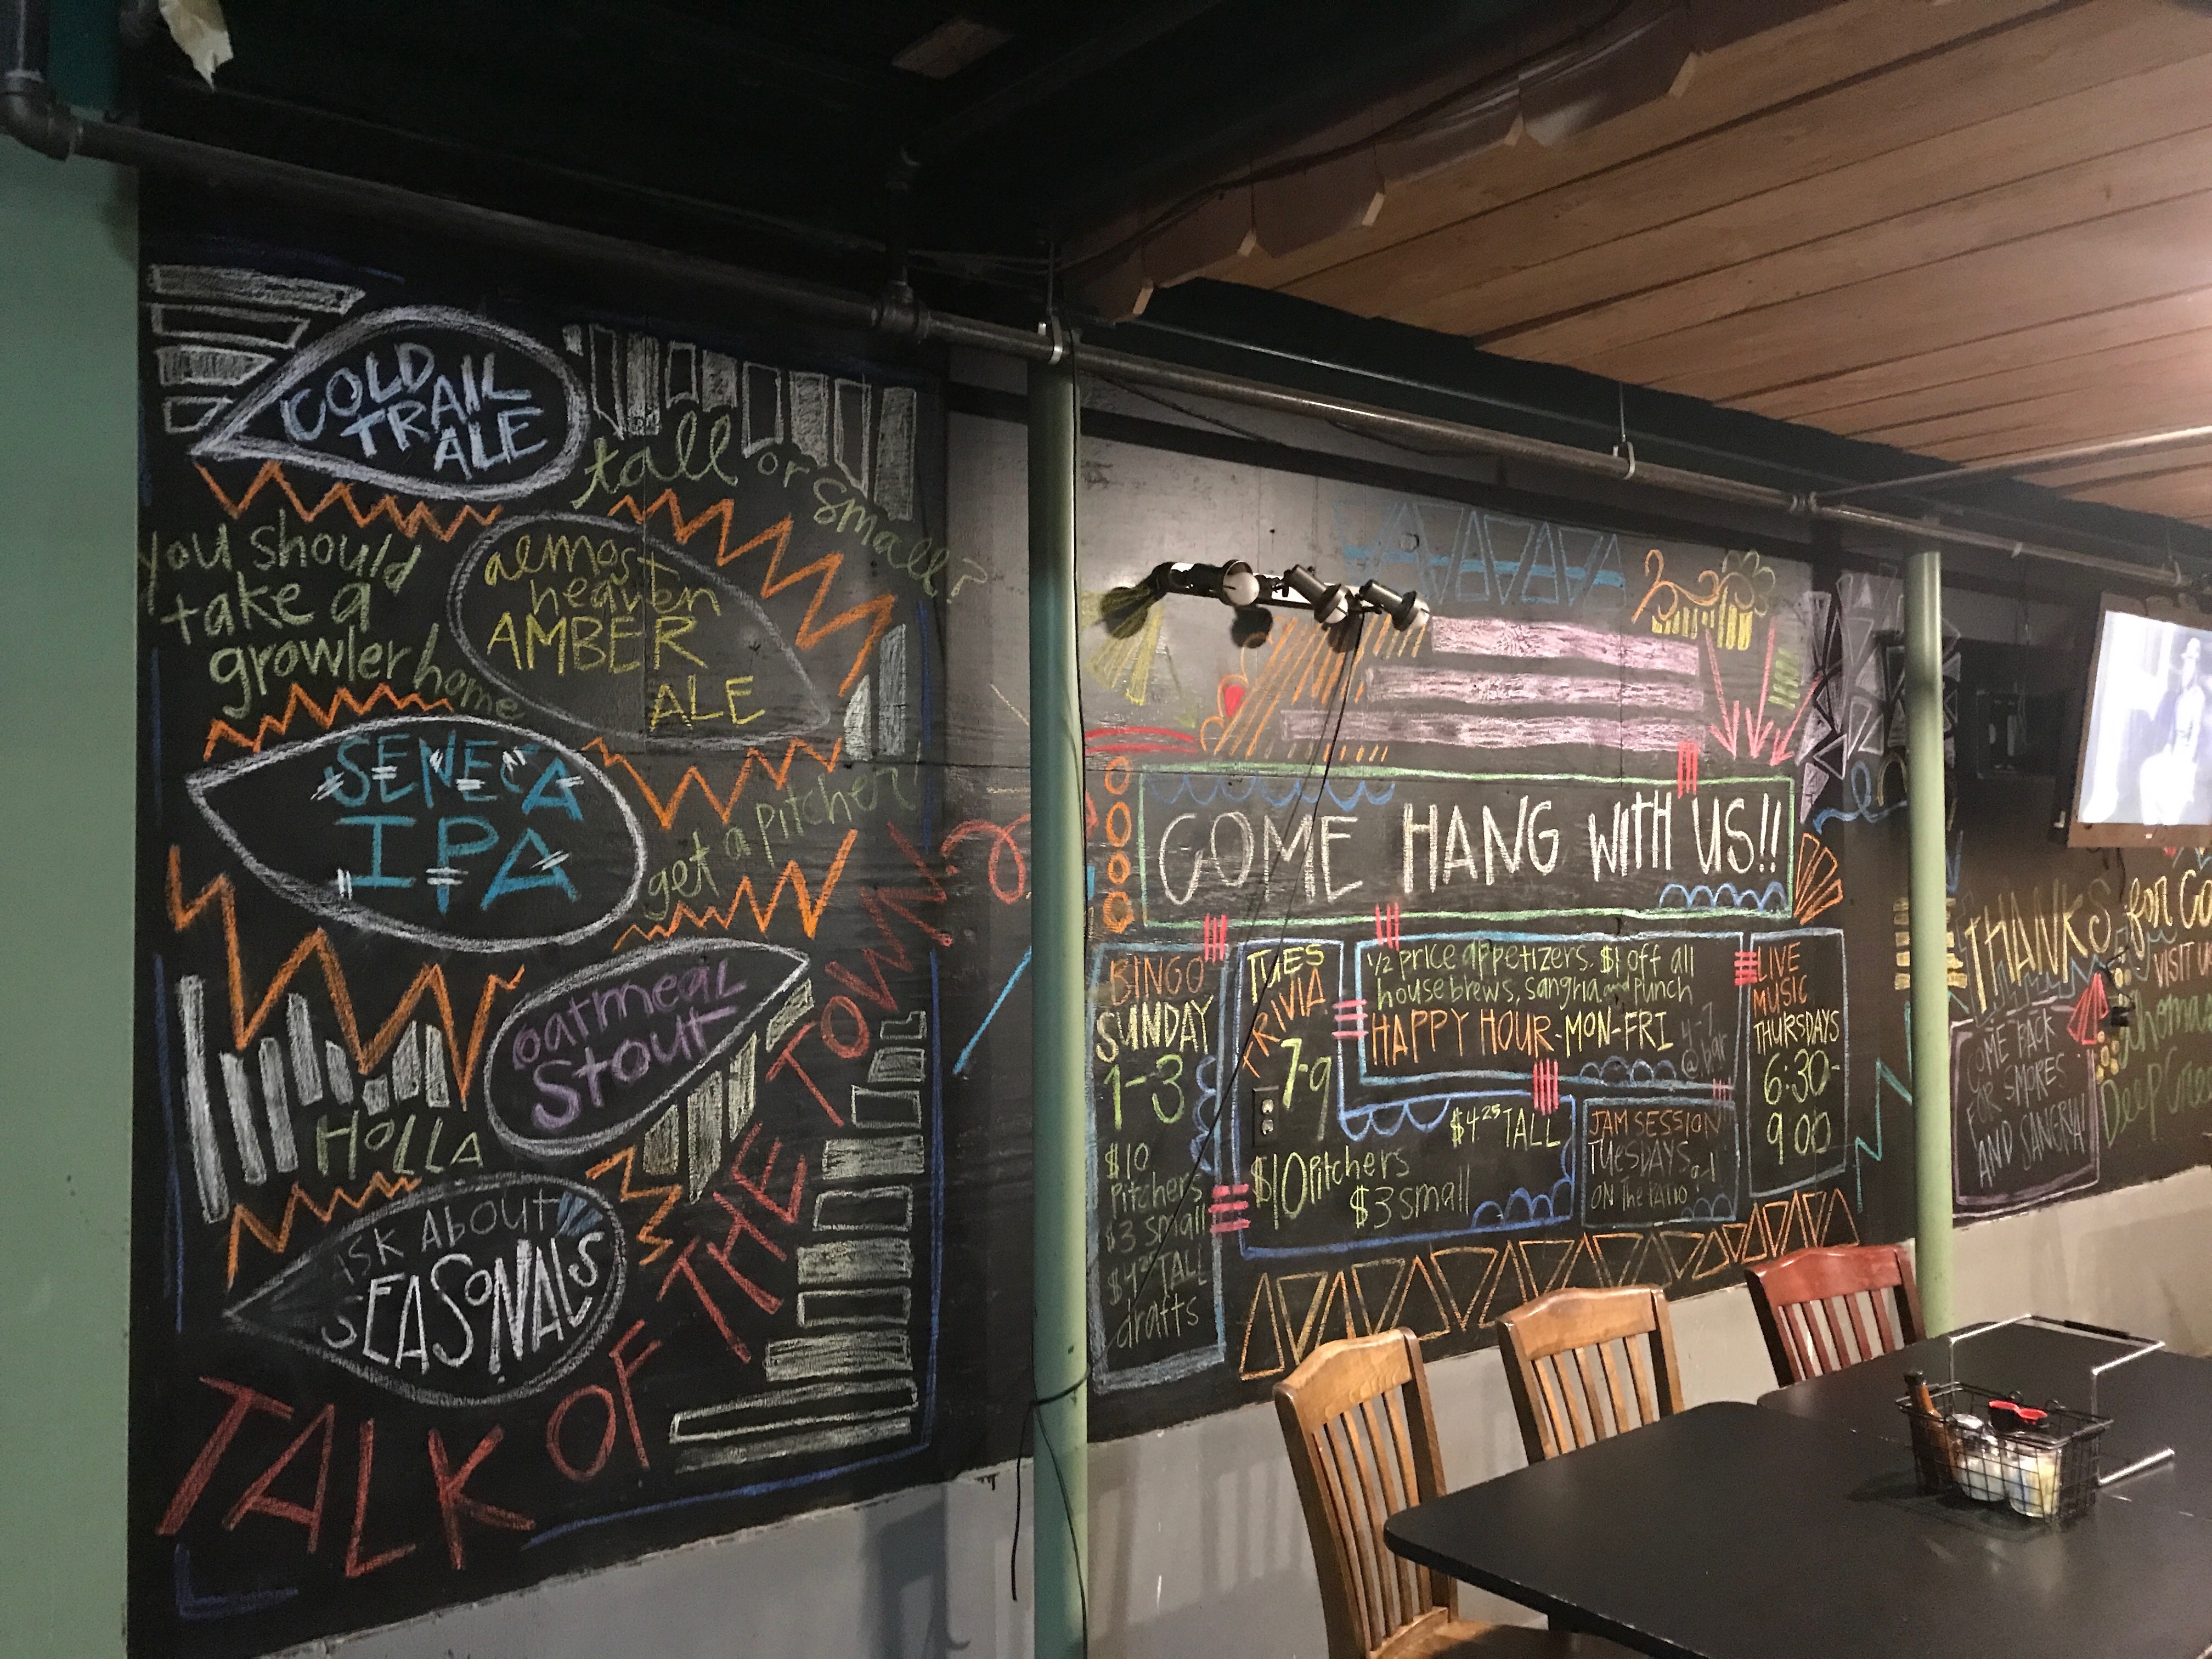 COLD
TRAIL
ALE
tall or small?
you should
take a
growler home
almost
heaven
AMBER
ALE
SENECA
IPA
get a pitcher!
oatmeal
Stout
HOLLA
ASK ABOUT
SEASONALS
TALK OF THE TOWN
COME HANG WITH US!!
BINGO
SUNDAY
1-3
$10
Pitchers
$3 small
$4.25 TALL
drafts
TUES
TRIVIA
7-9
$10 Pitchers
$4.25 TALL
$3 small
1/2 price appetizers. $1 off all
house brews, sangria and punch
HAPPY HOUR-MON-FRI 4-7
@ bar
JAM SESSION
TUESDAYS
ON THE PATIO
LIVE
MUSIC
THURSDAYS
6:30-
9:00
THANKS for
VISIT
COME BACK
FOR SMORES
AND SANGRIA!